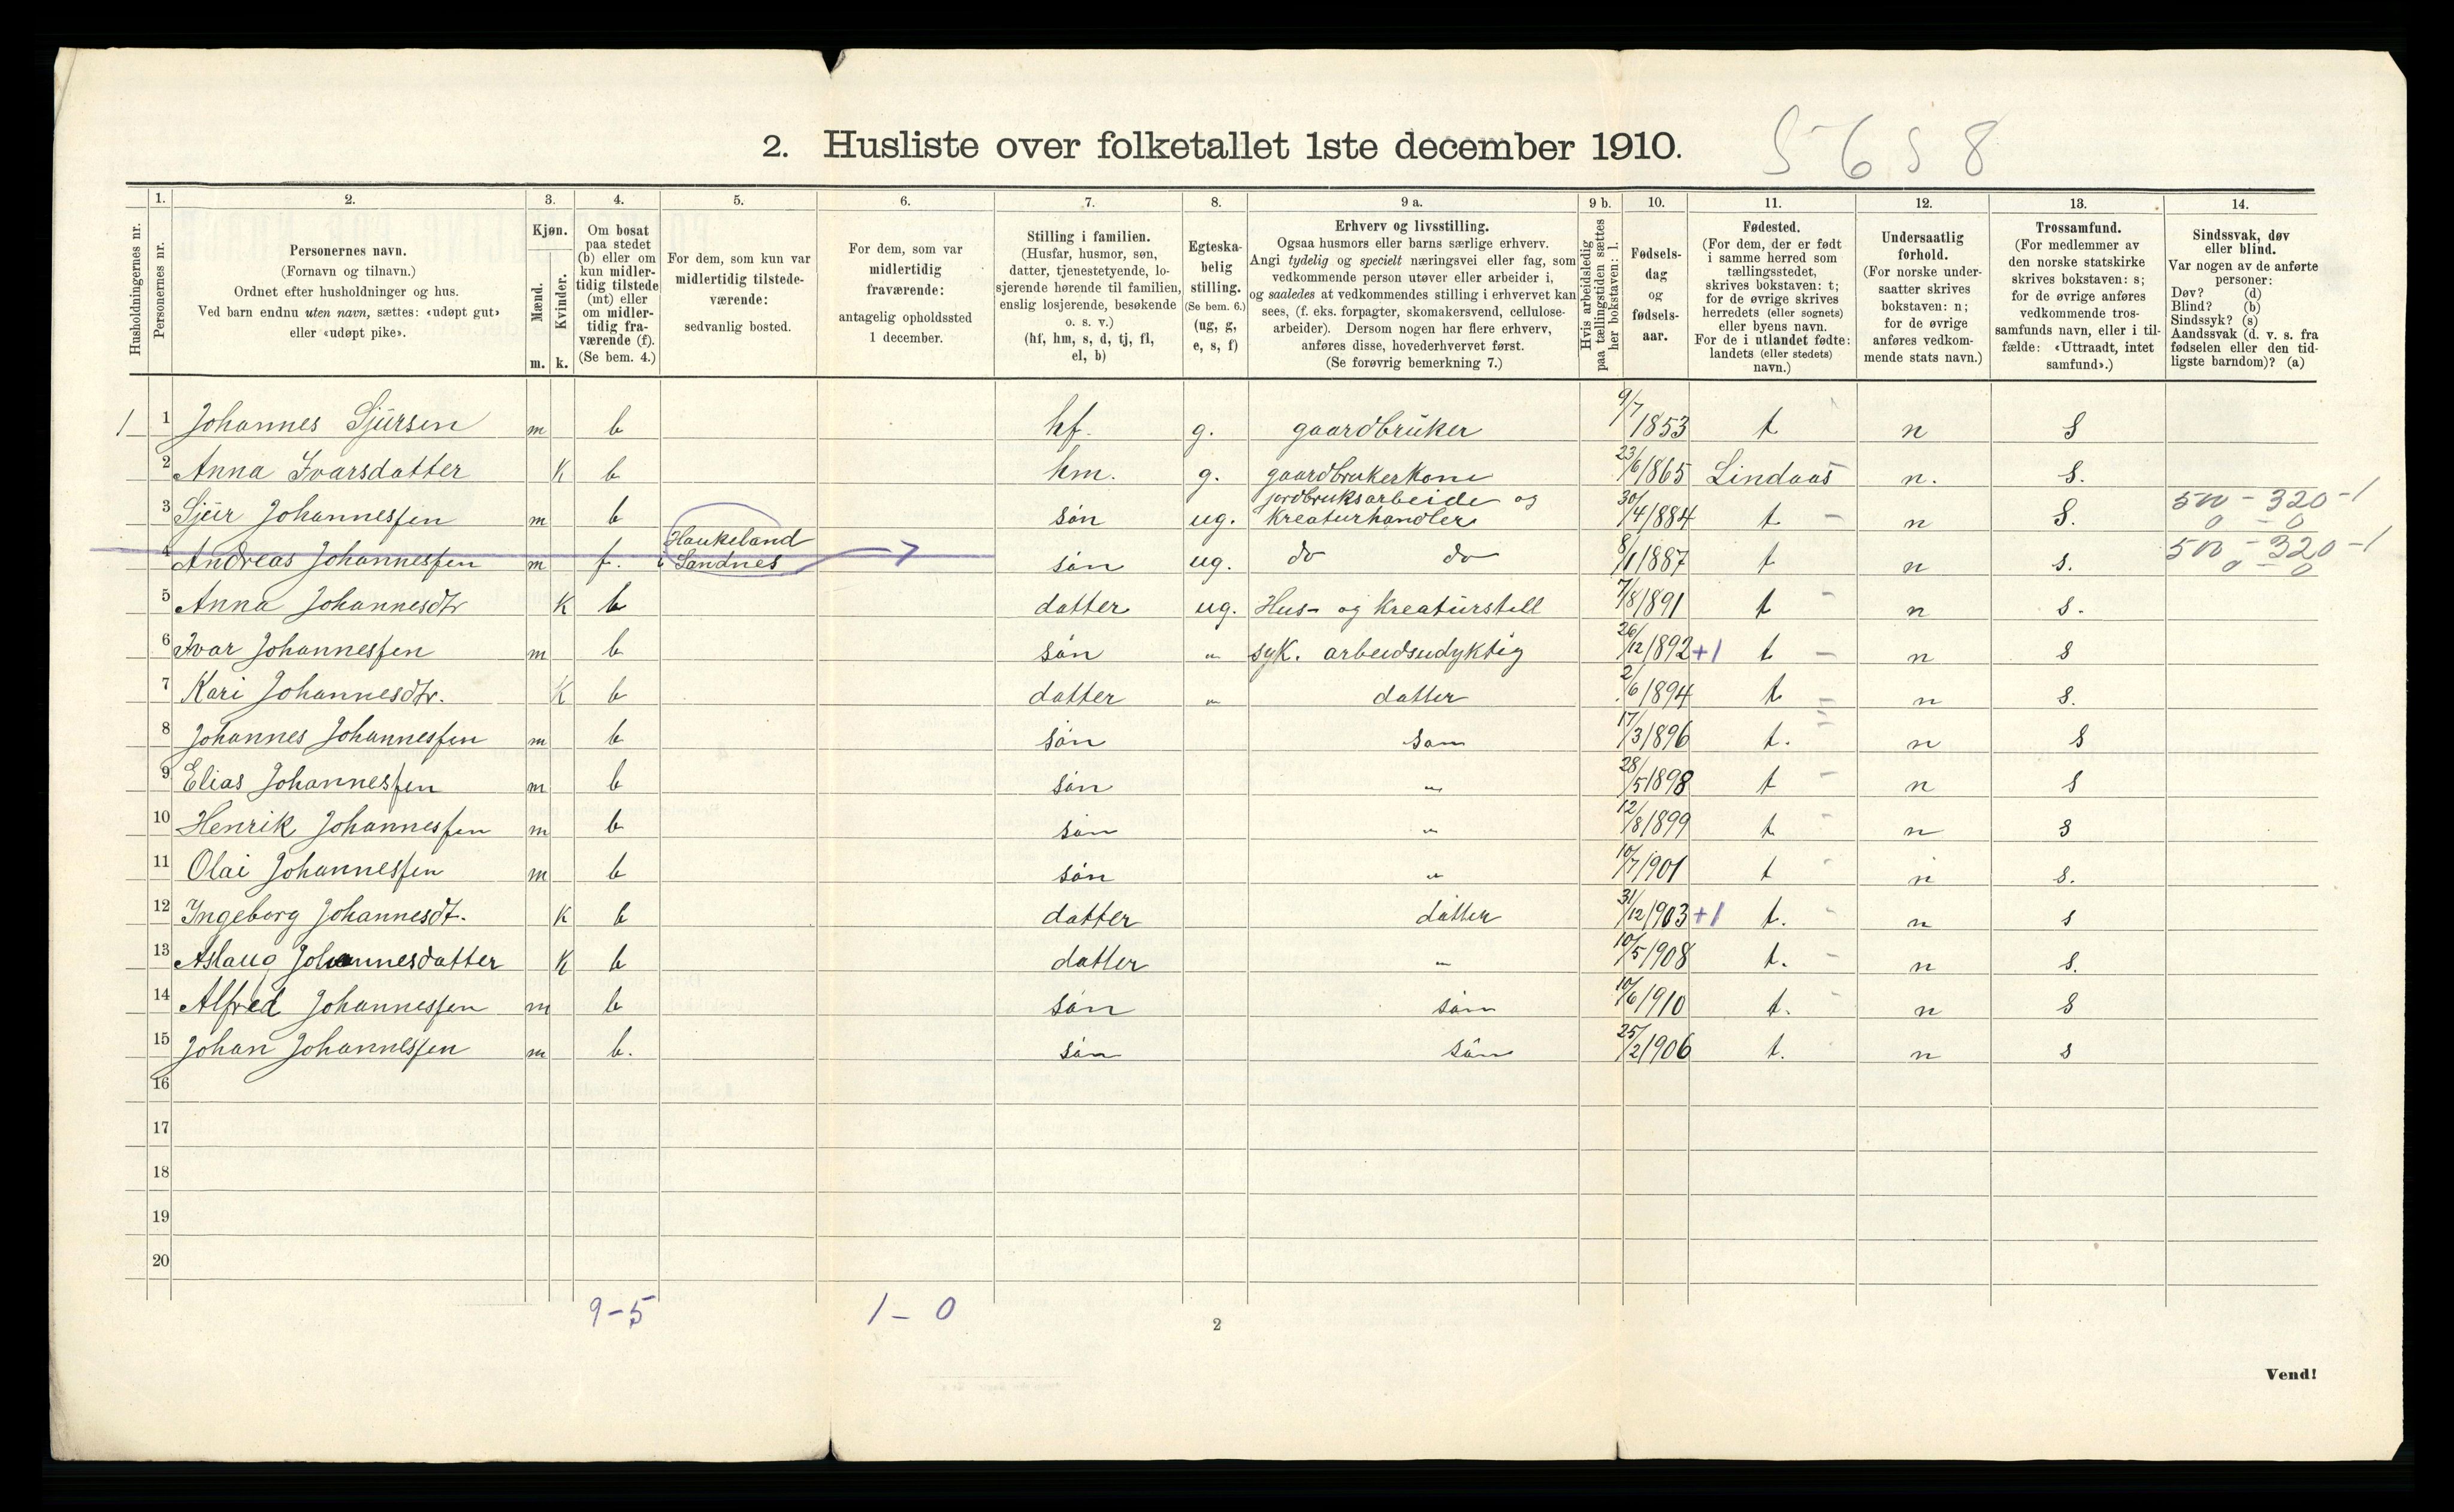 2. Husliste over folketallet 1ste december 1910.
5658
Husholdningernes nr.
1.
Personernes nr.
2.
Personernes navn.
(Fornavn og tilnavn.)
Ordnet efter husholdninger og hus.
Ved barn endnu uten navn, sættes: «udøpt gut»
eller «udøpt pike».
3.
Kjøn.
Mænd.
Kvinder.
m. k.
4.
Om bosat
paa stedet
(b) eller om
kun midler-
tidig tilstede
(mt) eller
om midler-
tidig fra-
værende (f).
(Se bem. 4.)
5.
For dem, som kun var
midlertidig tilstede-
værende:
sedvanlig bosted.
6.
For dem, som var
midlertidig
fraværende:
antagelig opholdssted
1 december.
7.
Stilling i familien.
(Husfar, husmor, søn,
datter, tjenestetyende, lo-
sjerende hørende til familien,
enslig losjerende, besøkende
o. s. v.)
(hf, hm, s, d, tj, fl,
el, b)
8.
Egteska-
belig
stilling.
(Se bem. 6.)
(ug, g,
e, s, f)
9 a.
Erhverv og livsstilling.
Ogsaa husmors eller barns særlige erhverv.
Angi tydelig og specielt næringsvei eller fag, som
vedkommende person utøver eller arbeider i,
og saaledes at vedkommendes stilling i erhvervet kan
sees, (f. eks. forpagter, skomakersvend, cellulose-
arbeider). Dersom nogen har flere erhverv,
anføres disse, hovederhvervet først.
(Se forøvrig bemerkning 7.)
9 b.
Hvis arbeidsledig
paa tællingstiden sættes
her bokstaven: l.
10.
Fødsels-
dag
og
fødsels-
aar.
11.
Fødested.
(For dem, der er født
i samme herred som
tællingsstedet,
skrives bokstaven: t;
for de øvrige skrives
herredets (eller sognets)
eller byens navn.
For de i utlandet fødte:
landets (eller stedets)
navn.)
12.
Undersaatlig
forhold.
(For norske under-
saatter skrives
bokstaven: n;
for de øvrige
anføres vedkom-
mende stats navn.)
13.
Trossamfund.
(For medlemmer av
den norske statskirke
skrives bokstaven: s;
for de øvrige anføres
vedkommende tros-
samfunds navn, eller i til-
fælde: «Uttraadt, intet
samfund».)
14.
Sindssvak, døv
eller blind.
Var nogen av de anførte
personer:
Døv? (d)
Blind? (b)
Sindssyk? (s)
Aandssvak (d. v. s. fra
fødselen eller den tid-
ligste barndom)? (a)
1 1 Johannes Sjursen m b hf. g. gaardbruker 9/7 1853 t n S
2 Anna Ivarsdatter K b hm. g. gaardbrukerkone 23/6 1865 Lindaas n. S.
3 Sjur Johannessen m b søn ug. jordbruksarbeide og kreaturhandler 30/4 1884 t n S. 500 - 320 - 1
0 - 0
4 Andreas Johannessen m f. Haukeland Sandnes søn ug. do do 8/1 1887 t n s. 500 - 320 - 1
0 - 0
5 Anna Johannesdtr K b datter ug. Hus- og kreaturstell 7/8 1891 t n s.
6 Ivar Johannessen m b søn " syk. arbeidsudyktig 26/12 1892 +1 t n s
7 Kari Johannesdtr. K b datter " datter 2/6 1894 t n s.
8 Johannes Johannessen m b søn søn 17/3 1896 t. n s
9 Elias Johannessen m b søn " 28/5 1898 t n s
10 Henrik Johannessen m b søn " 12/8 1899 t n s
11 Olai Johannessen m b søn " 10/7 1901 t n s.
12 Ingeborg Johannesdt. K b datter datter 31/12 1903 +1 t. n s
13 Aslaug Johannesdatter K b datter " 10/5 1908 t. n s.
14 Alfred Johannessen m b søn søn 10/6 1910 t. n s
15 Johan Johannessen m b. søn søn 25/2 1906 t. n s
16
17
18
19
20
9-5 1-0
2
Vend!